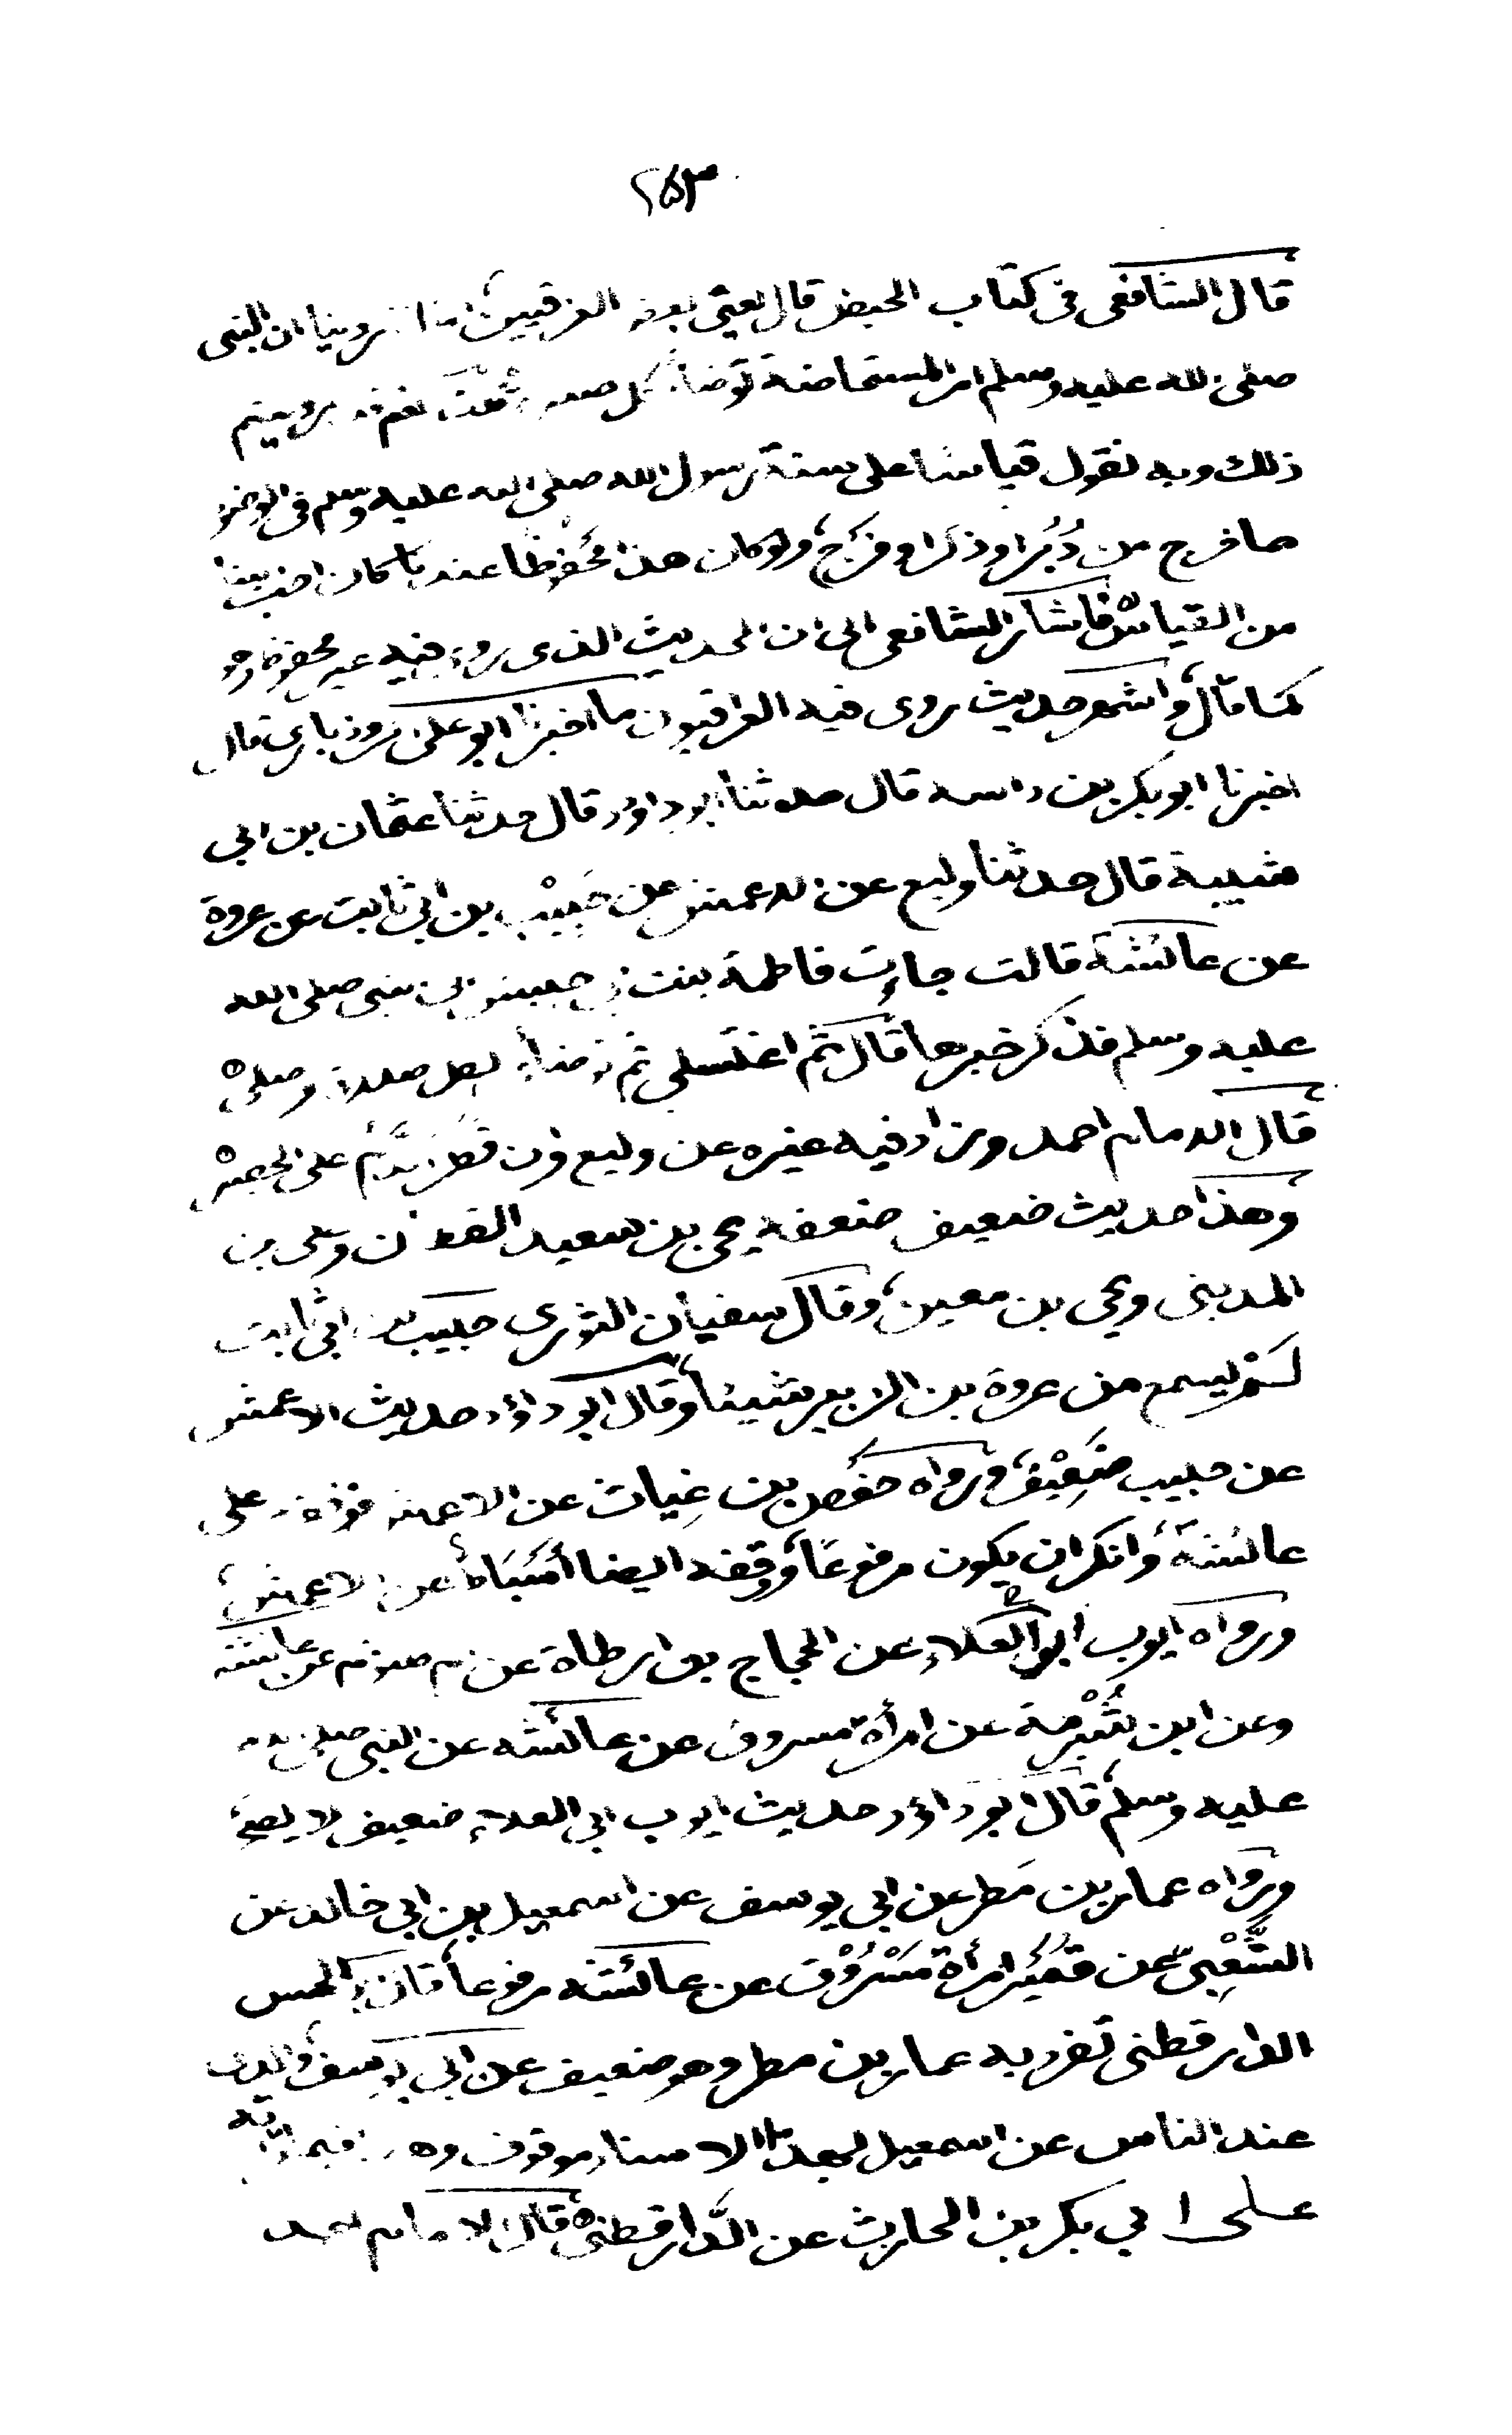 ٢٥٣
قال الشافعى فى كتاب الحيض قال يعنى بعض العراقيين انا روينا ان النبى
صلى الله عليه وسلم امر المستحاضة توضأ لكل صلوة قلت نعم قد رويتم
ذلك وبه نقول قياسا على سنة رسول الله صلى الله عليه وسلم فى الوضوء
مما خرج من دُبُر او ذكر او فرْج ولو كان هذا محفوظا عندنا كان احب الينا
من القياس فاشار الشافعى الى ان الحديث الذى روى فيه غير محفوظ وهو
كما قال واشهر حديث روى فيه العراقيون ما اخبرنا ابو على الروذبارى قال
اخبرنا ابو بكر بن داسه قال حدثنا ابو داؤد قال حدثنا عثمان بن ابى
شيبة قال حدثنا وكيع عن الاعمش عن حَبِيْب بن ابى ثابت عن عروة
عن عائشة قالت جاءت فاطمة بنت ابى حبيش الى النبى صلى الله
عليه وسلم فذكر خبرها قال ثم اغتسلى ثم توضأى لكل صلوة وصلى
قال الامام احمد وزاد فيه غيره عن وكيع وان قطر الدم على الحصير
وهذا حديث ضعيف ضعفه يحى بن سعيد القطان وعلى بن
المدينى ويحى بن معين وقال سفيان الثورى حبيب بن ابى ثابت
لم يسمع من عروة بن الزبير شيئا وقال ابو داؤد حديث الاعمش
عن حبيب ضَعِيْف ورواه حفص بن غِياث عن الاعمش فوقفه على
عائشة وانكر ان يكون مرفوعًا ووقفه ايضا اسباط عن الاعمش
ورواه ايوب ابو العلاء عن الحجاج بن ارطاة عن ام كلثوم عن عائشة
وعن ابن شُبْرُمة عن امرأة مسروق عن عائشه عن النبى صلى الله
عليه وسلم قال ابو داؤد حديث ايوب ابى العلاء ضعيف لا يصح
ورواه عمار بن مَطر عن ابى يوسف عن اسمعيل بن ابى خالد عن
الشَّعْبِى عن قَمِيْر امرأة مَسْرُوْق عن عائشه مرفوعا قال ابو الحسن
الدارقطنى تفرد به عمار بن مطر وهو ضعيف عن ابى يوسف والذى
عند الناس عن اسمعيل بهذا الاسناد موقوف وهو فيما قرأته
على ابي بكر بن الحارث عن الدَّارقطنى قال الامام احمد